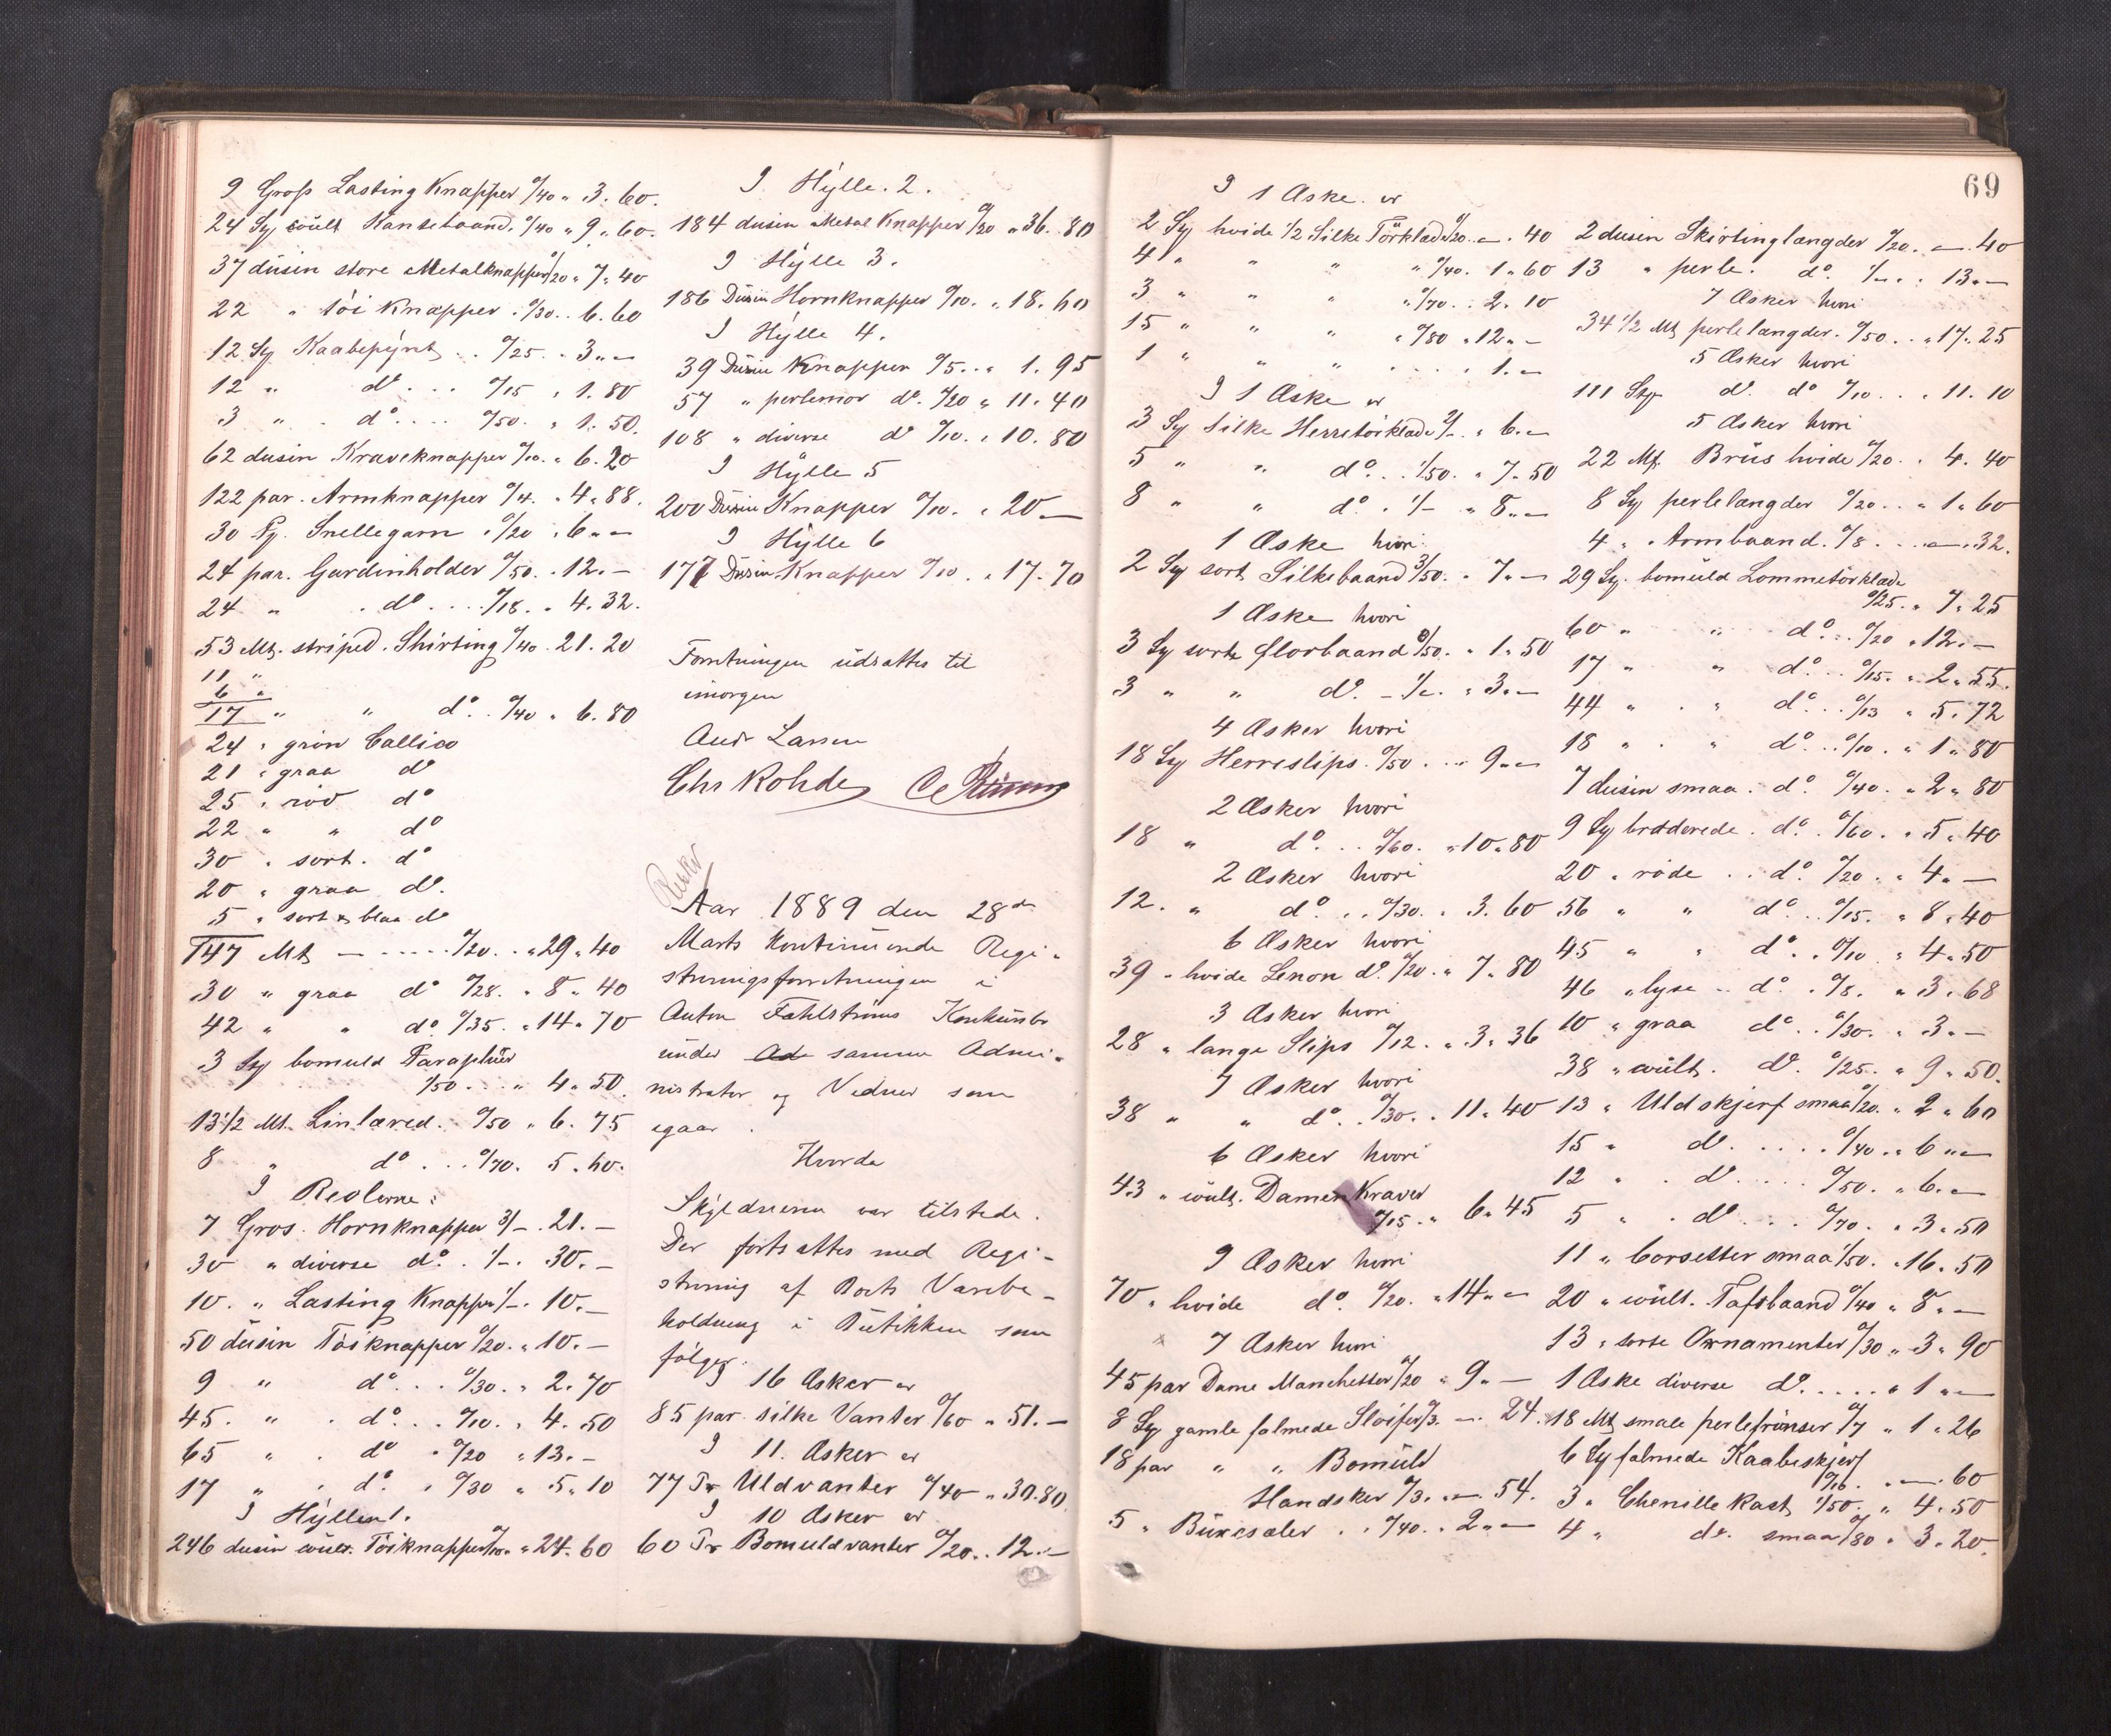 9 Gross Lasting Knapper 0/40 " 3.60.
24 Sy  Kantebaand. 0/40 " 9.60.
37 dusin store Metalknapper 0/20 " 7.40
22 " töi Knapper . 0/30 . . 6.60
12 Sy Kaabepynt . . 0/25 . . 3."—
12 " do . . . 0/15 . 1.80
3 " . do . . . . 0/50 . " 1.50.
62 dusin Kraveknapper 0/10. " 6.20
122 par. Armknapper 0/4. . 4.88.
30 Pj. Snellegarn . 0/20 . 6."—
24 par. Gardinholder 0/50. . 12.—
24 " . do . . . 0/18. " 4.32.
53 Mt. striped. Shirting 0/40. 21.20
11 "
6 "
17 " " do . . 0/40 " 6.80
24 " grön Callico
21 " graa do
25 " röd do
22 " " do
30 " sort. do
20 " graa do.
5 " sort & blaa do
147 Mt — - - - - 0/20. . "29.40
30 " graa do 0/28. " 8.40
42 " " do 0/35. "14.70
3 Sy bomuld Parapluier
1/50 . . . " 4.50.
13 1/2 Mt. Linlæred. 0/50 " 6.75
8 " do . . . 0/70. 5.60.
I Reolerne:
7 Gros. Hornknapper 3/— . 21.—
30 " diverse do. . 1/—. 30.—
10. " Lasting Knapper 1/—. 10.—
50 dusin Töiknapper 0/20. " 10.—
9 " do . . . 0/30. " 2.70
45. " . do . . . 0/10. . 4.50
65 " . do " 0/20 " 13.—
17 " . do . 0/30 " 5.10
I Hyllen 1.
246 dusin  Töiknapper 0/10. " 24.60
I Hylle. 2.
184 dusin Metal Knapper 0/20 " 36.80
I Hylle 3.
186 Dusin Hornknapper 0/10. " 18.60
I Hylle 4.
39 Dusin Knapper 0/5. . " 1.95
57 " perlemor do. 0/20 " 11.40
108 " diverse do 0/10. . 10.80
I Hylle 5
200 Dusin Knapper 0/10. . 20 —
I Hylle 6
177 Dusin Knapper 0/10 . " 17.70
Forretningen udsattes til
imorgen
Andr Larsen
Chr Rohde
Aar 1889 den 28de
Marts kontinuerede Regi-
streringsforretningen i
Anton Fahlströms Konkursbo
under Ade samme Admi-
nistrator og Vidner som
igaar.
Hvorda
Skyldneren var tilstede.
Der fortsattes med Regi-
strering af Boets Varebe-
holdning i Butikken som
følger.
I 16 Æsker er
85 par. silke Vanter 0/60 " 51.—
I 11. Æsker er
77 Pr Uldvanter 0/40 " 30.80.
I 10 Æsker er
60 Pr Bomuldvanter 0/20. . 12.—
69
I 1 Æske er
2 Sy hvide 1/2 Silke Törklæde 0/20. —. 40
4 " " " " 0/40. 1.60
3 " " " " 0/70. . 2.10
15 " " " " 0/80 " 12."—
1 " " " . . . . . 1.—
I 1 Æske er
3 Sy silke Herretörklæde 2/—. " 6.—
5 " " do. . . 1/50. " 7.50
8 " " do. . 1/— " 8."—
1 Æske hvori
2 Sy sort Silkebaand 3/50. . 7."—
1 Æske hvori
3 Sy sorte florbaand 0/50. " 1.50
3 " " do. - 1/—. " 3.—
4 Æsker hvori
18 Sy Herreslips. 0/50 . . . 9."—
2 Æsker hvori
18 " do. . . 0/60. " 10.80
2 Æsker hvori
12. " do. . . 0/30. . 3.60
6 Æsker hvori
39 " hvide Lenon do. 0/20. " 7.80
3 Æsker hvori
28 " lange Slips 0/12. " 3.36
7 Æsker hvori
38 " " do. . 0/30. . 11.40
6 Æsker hvori
43 "  Damen Kraver
0/15. " 6.45
9 Æsker hvori
70 " hvide do. 0/20. " 14."—
7 Æsker hvori
45 par Dame Manchetter 0/20 " 9."—
8 Sy gamle falmede Slöifer 0/3. —. 24.
18 par " " Bomuld
Handsker 0/3. —. 54.
5 " Buxesæler . . 0/40. . 2."—
2 dusin Skirtinglængder 0/20. —. 40
13 " perle. do. 1/—. . 13.—
7 Æsker hvori
34 1/2 Mt perlelængder. 0/50. . . 17.25
5 Æsker hvori
111 Sty do. do 0/10. . . 11.10
5 Æsker hvori
22 Mt. Brüs hvide 0/20. . 4.40
8 Sy perlelængder 0/20. . " 1.60
4 " Armbaand. 0/8 . . . —. 32.
29 Sy. bomuld Lommetörklæde
0/25. " 7.25
60 " " do. . 0/20 " 12.—
17 " " do. . 0/15. " 2.55.
44 " " do. . . 0/13 " 5.72
18 " . " do. . . 0/10. " 1.80
7 dusin smaa. do. 0/40. " 2.80
9 Sy broderede. do. . 0/60. " 5.40
20 " röde . . do. 0/20. " 4.—
56 " " do. . . 0/15. " 8.40
45 " " do. . 0/10 " 4.50
46 " lyse . . do. . 0/8. " 3.68
10 " graa do. . 0/30. " 3.—
38 "  do. 0/25. " 9.50.
13 " Uldskjerf smaa 0/20. " 2.60
15 " do . . . . . 0/40 . " 6."—
12 " . do . . . . 0/50. " 6.—
5 " . do . . . 0/70. " 3.50
11 " Corsetter smaa 1/50. . 16.50
20 "  Tafsbaand 0/40 " 8.—
13 " sorte Ornamenter 0/30 " 3.90
1 Æske diverse do. . . . . " 1."—
18 Mt smale perlefrünser 0/7 " 1.26
6 Sy falmede Kaabeskjerf
0/10. . —. 60
3 " Chenille Kast 1/50. " 4.50
4 " do. smaa 0/80. 3.20.